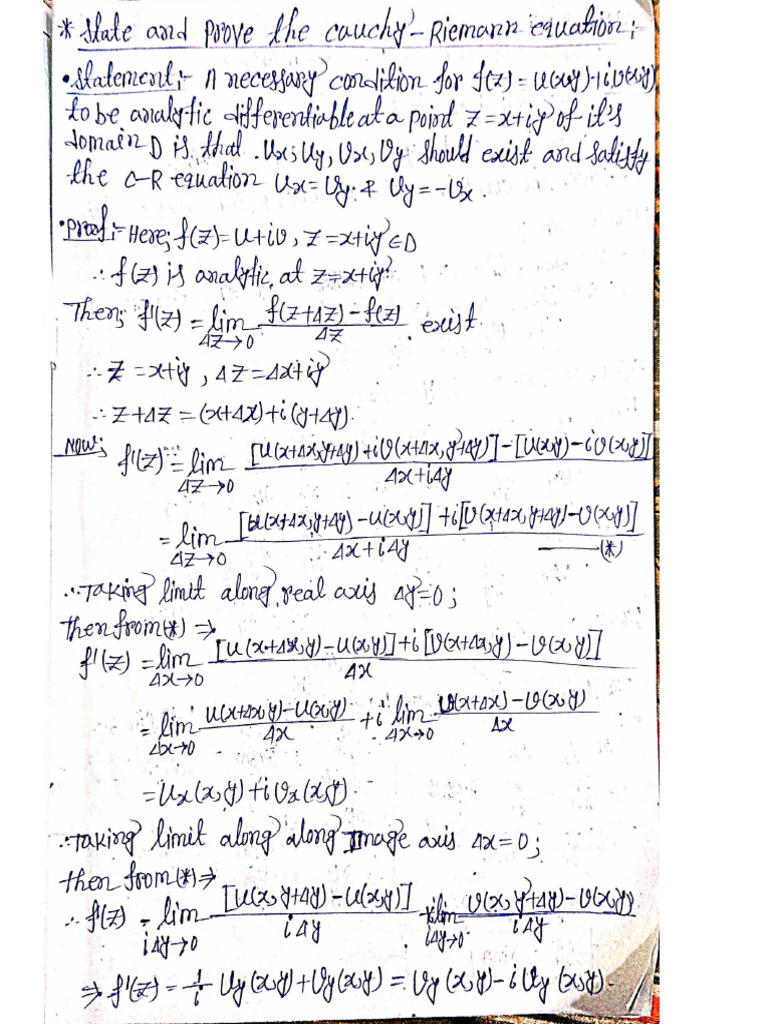 * State and prove the cauchy-Riemann equation:
• Statement:- A necessary condition for f(z) = u(x,y)+iv(x,y)
to be analytic differentiable at a point z = x+iy of it's
domain D is that. Ux, Uy, Vx, Vy should exist and satisfy
the C-R equation Ux = Vy & Uy = -Vx.
• Proof:- Here; f(z) = u+iv, z = x+iy ∈ D
∴ f(z) is analytic, at z = x+iy
Then; f'(z) = lim Δz→0 f(z+Δz) - f(z) / Δz exist
∴ z = x+iy, Δz = Δx+iy
∴ z+Δz = (x+Δx)+i(y+Δy).
Now; f'(z) = lim Δz→0 [u(x+Δx,y+Δy)+iv(x+Δx,y+Δy)] - [u(x,y) - iv(x,y)] / Δx+iΔy
= lim Δz→0 [u(x+Δx,y+Δy) - u(x,y)] + i[v(x+Δx,y+Δy) - v(x,y)] / Δx+iΔy —(*)
∴ Taking limit along real axis Δy=0;
then from(*) ⇒
f'(z) = lim Δx→0 [u(x+Δx,y) - u(x,y)] + i[v(x+Δx,y) - v(x,y)] / Δx
= lim Δx→0 u(x+Δx,y) - u(x,y) / Δx + i lim Δx→0 v(x+Δx) - v(x,y) / Δx
= Ux(x,y)+iVx(x,y).
∴ Taking limit along along Image axis Δx=0;
then from(*) ⇒
∴ f'(z) = lim iΔy→0 [u(x,y+Δy) - u(x,y)] / iΔy + i lim iΔy→0 v(x,y+Δy) - v(x,y) / iΔy
⇒ f'(z) = 1/i Uy(x,y)+Vy(x,y) = Vy(x,y) - iUy(x,y).